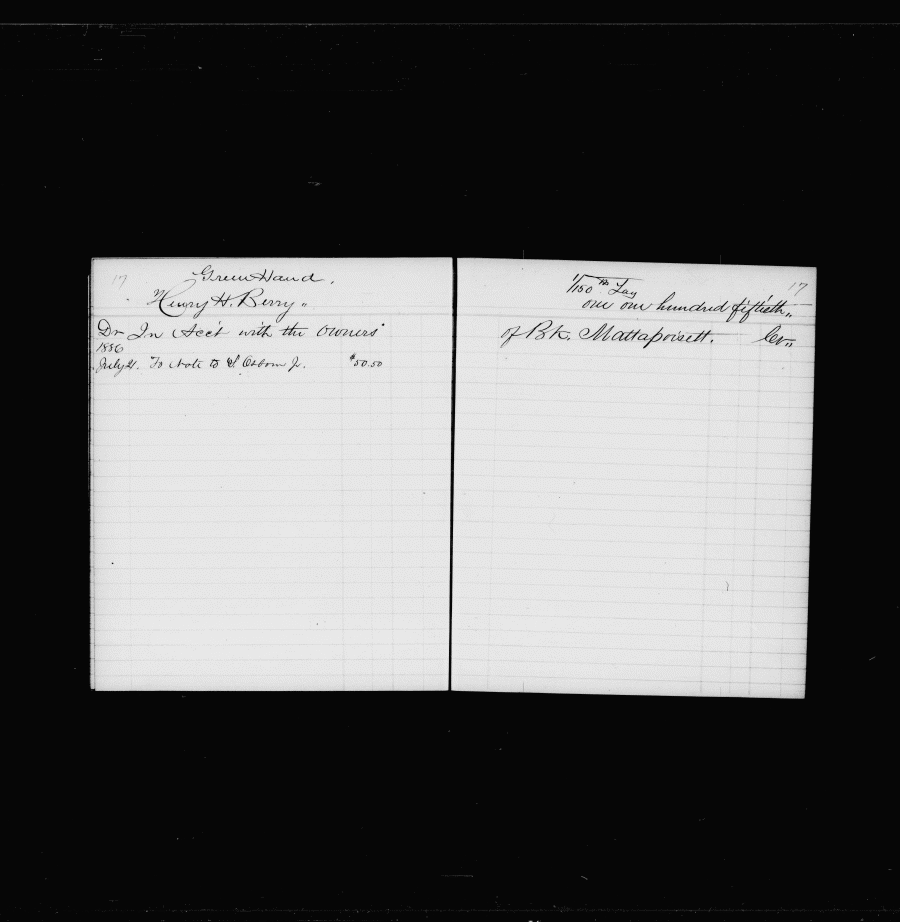 17
Green Hand.
Henry H. Berry"
Dr In Acc't with the Owners
1886
July 21. To Note to S. Osborn Jr. $50.50
17
1/150th Lay
one one hundred fiftieth"
of Bk. Mattapoisett. Cr"